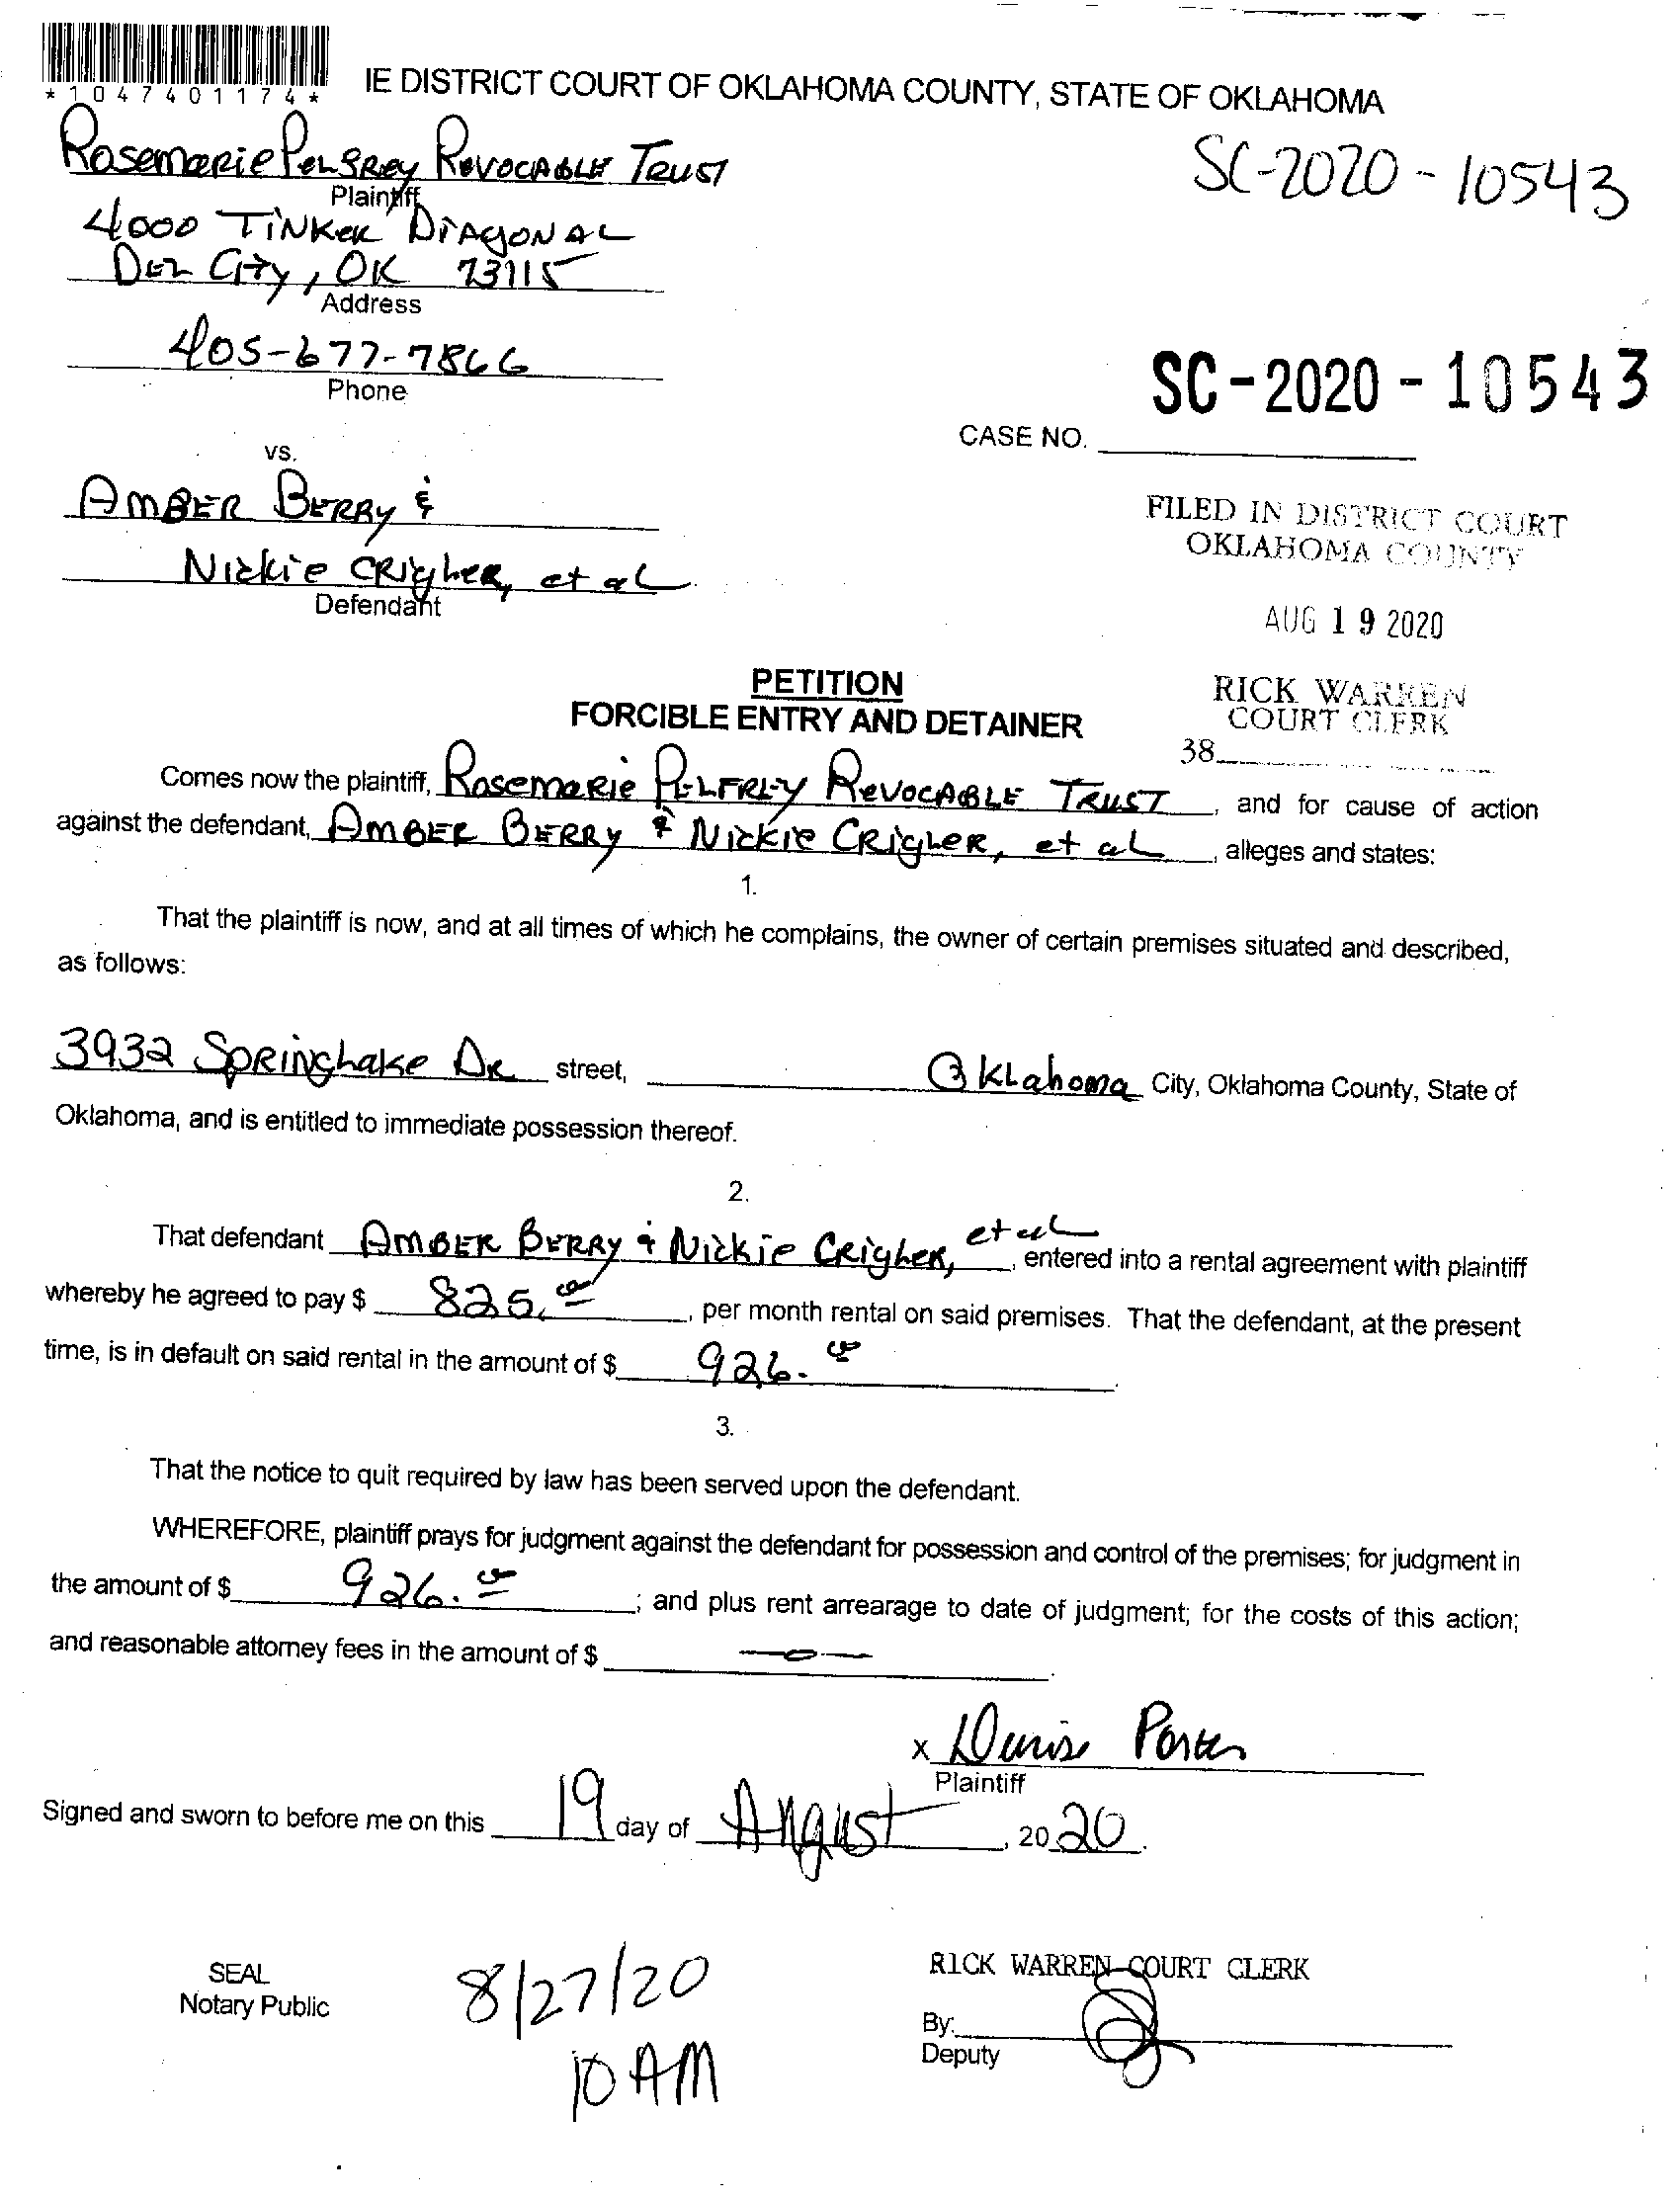 *1047401174*
IE DISTRICT COURT OF OKLAHOMA COUNTY, STATE OF OKLAHOMA
Rosemarie Pelfrey Revocable Trust
SC-2020-10543
Plaintiff
4000 Tinker Diagonal
Del City, OK 73115
Address
405-677-7866
Phone
SC-2020-10543
CASE NO.
vs.
Amber Berry &
Nickie Crigler, et al
Defendant
FILED IN DISTRICT COURT
OKLAHOMA COUNTY
AUG 19 2020
RICK WARREN
COURT CLERK
38
PETITION
FORCIBLE ENTRY AND DETAINER
Comes now the plaintiff, Rosemarie Pelfrey Revocable Trust, and for cause of action
against the defendant, Amber Berry & Nickie Crigler, et al, alleges and states:
1.
That the plaintiff is now, and at all times of which he complains, the owner of certain premises situated and described,
as follows:
3932 Springlake Dr street, Oklahoma City, Oklahoma County, State of
Oklahoma, and is entitled to immediate possession thereof.
2.
That defendant Amber Berry & Nickie Crigler, et al, entered into a rental agreement with plaintiff
whereby he agreed to pay $ 825.00, per month rental on said premises. That the defendant, at the present
time, is in default on said rental in the amount of $ 926.00.
3.
That the notice to quit required by law has been served upon the defendant.
WHEREFORE, plaintiff prays for judgment against the defendant for possession and control of the premises; for judgment in
the amount of $ 926.00; and plus rent arrearage to date of judgment; for the costs of this action;
and reasonable attorney fees in the amount of $ —0—.
x Denise Porter
Plaintiff
Signed and sworn to before me on this 19 day of August, 2020.
SEAL
Notary Public
8/27/20
10 AM
RICK WARREN COURT CLERK
By:
Deputy